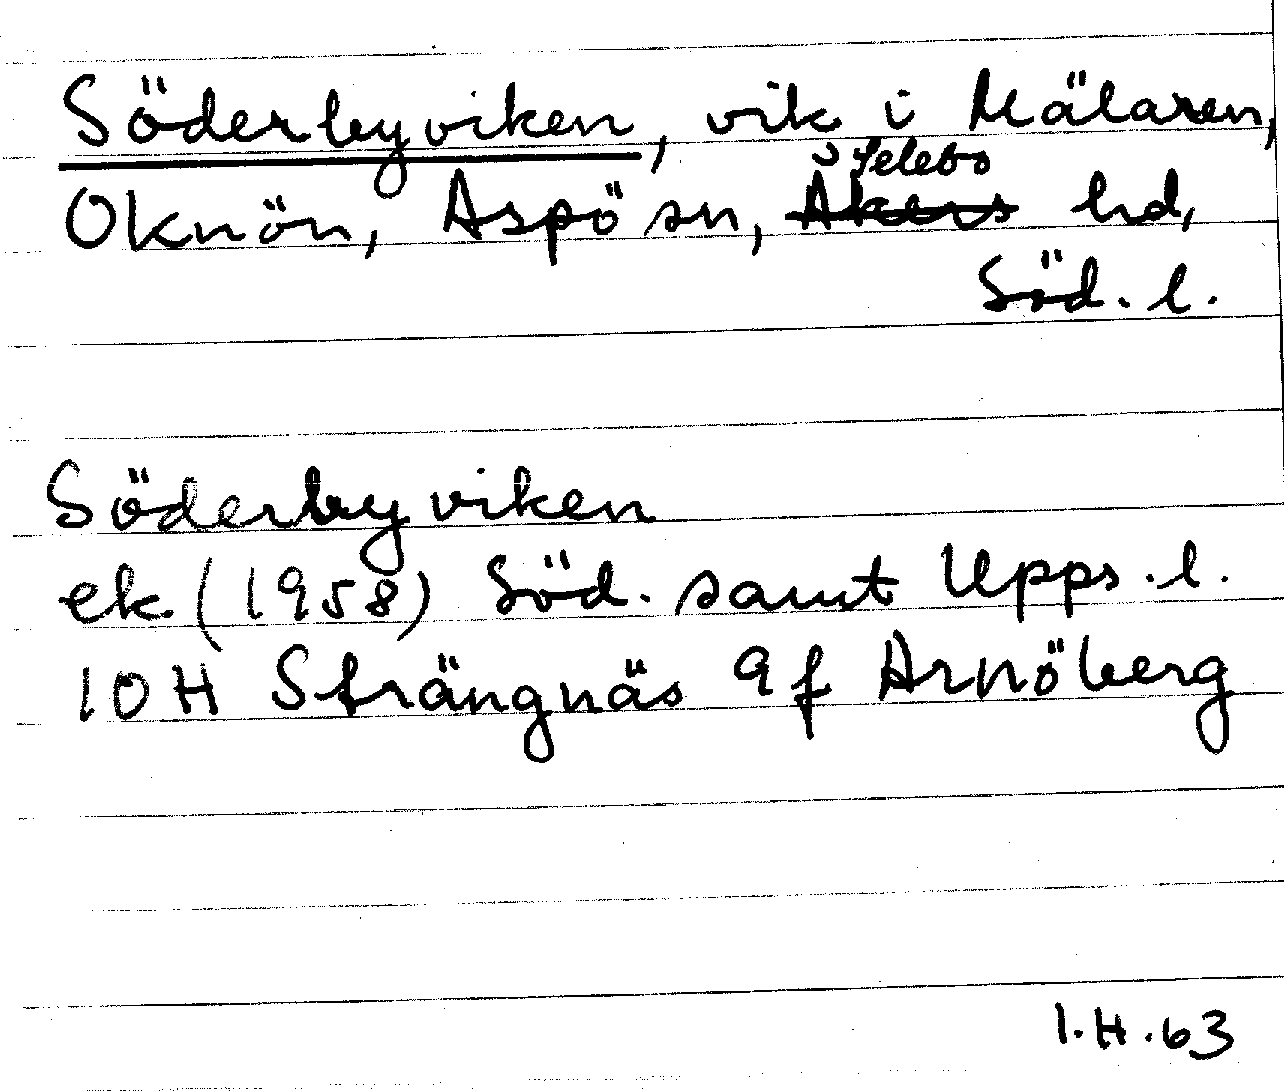 Söderbyviken, vik i Mälaren,
Selebo
Oknön, Aspö sn, Åkers hd,
Söd. l.
Söderbyviken
ek (1958) Söd. samt Upps. l.
10H Strängnäs 9f Arnöberg
I.H.63